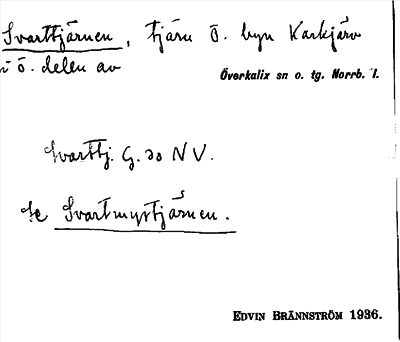 Svarttjärnen, tjärn ö. byn Karkjärv
i ö. delen av
Överkalix sn o. tg. Norrb. l.
Svarttj. G. 20 NV.
Se Svartmyrtjärnen.
EDVIN BRÄNNSTRÖM 1936.